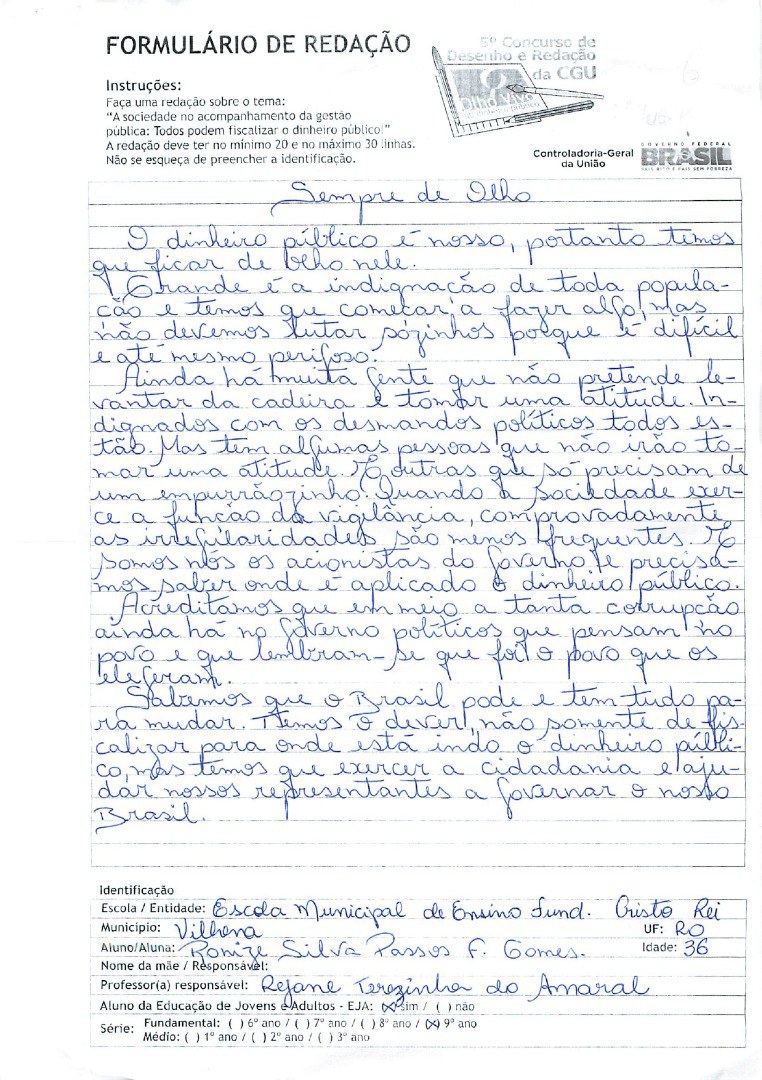 FORMULÁRIO DE REDAÇÃO
5º Concurso de
Desenho e Redação
da CGU
Instruções:
Faça uma redação sobre o tema:
"A sociedade no acompanhamento da gestão
pública: Todos podem fiscalizar o dinheiro público!"
A redação deve ter no mínimo 20 e no máximo 30 linhas.
Não se esqueça de preencher a identificação.
Controladoria-Geral
da União
GOVERNO FEDERAL
BRASIL
PAÍS RICO É PAÍS SEM POBREZA
Sempre de Olho
O dinheiro público é nosso, portanto temos
que ficar de olho nele.
Grande é a indignação de toda popula-
ção e temos que começar a fazer algo, mas
não devemos lutar sózinhos porque é difícil
e até mesmo perigoso.
Ainda há muita gente que não pretende le-
vantar da cadeira e tomar uma atitude. In-
dignados com os desmandos políticos todos es-
tão. Mas tem algumas pessoas que não irão to-
mar uma atitude. E outras que só precisam de
um empurrãozinho. Quando a sociedade exer-
ce a função da vigilância, comprovadamente
as irregilaridades são menos frequentes. E
somos nós os acionistas do governo e precisa-
mos saber onde é aplicado o dinheiro público.
Acreditamos que em meio a tanta corrupção
ainda há no governo políticos que pensam no
povo e que lembram-se que foi o povo que os
elegeram.
Sabemos que o Brasil pode e tem tudo pa-
ra mudar. Temos o dever, não somente de fis-
calizar para onde está indo o dinheiro públi-
co, mas temos que exercer a cidadania e aju-
dar nossos representantes a governar o nosso
Brasil.
Identificação
Escola / Entidade: Escola Municipal de Ensino Fund. Cristo Rei
Município: Vilhena UF: RO
Aluno/Aluna: Ronize Silva Passos F. Gomes. Idade: 36
Nome da mãe / Responsável:
Professor(a) responsável: Rejane Terezinha do Amaral
Aluno da Educação de Jovens e Adultos - EJA: (X) sim / ( ) não
Série: Fundamental: ( ) 6º ano / ( ) 7º ano / ( ) 8º ano / (X) 9º ano
Médio: ( ) 1º ano / ( ) 2º ano / ( ) 3º ano